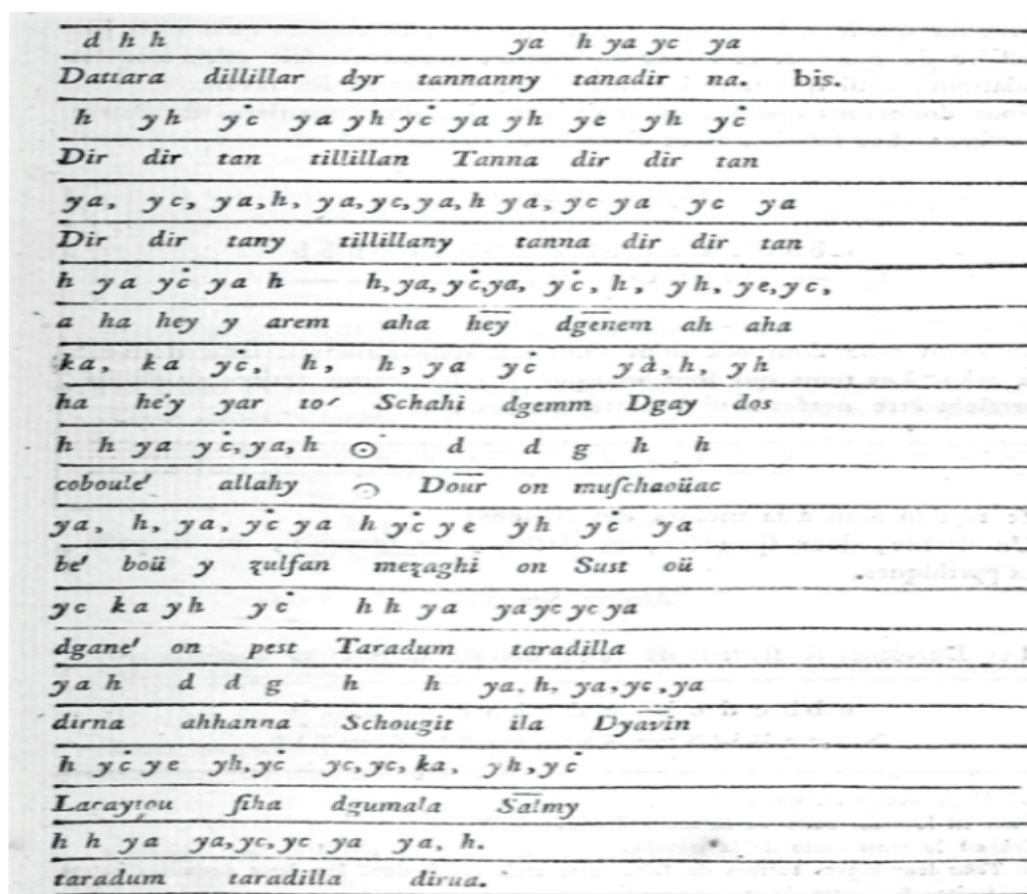 d h h ya h ya yc ya
Dattara dillillar dyr tannanny tanadir na. bis.
h yh yċ ya yh yċ ya yh ye yh yċ
Dir dir tan tillillan Tanna dir dir tan
ya, yc, ya,h, ya,yc,ya,h ya, yc ya yc ya
Dir dir tany tillillany tanna dir dir tan
h ya yċ ya h h, ya, yċ,ya, yċ, h, yh, ye,yc,
a ha hey y arem aha hēy dgēnem ah aha
ka, ka yċ, h, h, ya yċ yȧ, h, yh
ha he'y yar to' Schahi dgemm Dgay dos
h h ya yċ,ya,h ☉ d d g h h
coboule' allahy Doūr on muſchaoüac
ya, h, ya, yċ ya h yċ ye yh yċ ya
be' boü y zulfan mezaghi on Sust oü
yc ka yh yċ h h ya ya yc yc ya
dgane' on pest Taradum taradilla
ya h d d g h h ya, h, ya,yc,ya
dirna ahhanna Schougit ila Dyavīn
h yċ ye yh,yċ yc,yc, ka, yh,yċ
Laraytou fiha dgumala Sālmy
h h ya ya,yc,yc ya ya, h.
taradum taradilla dirua.